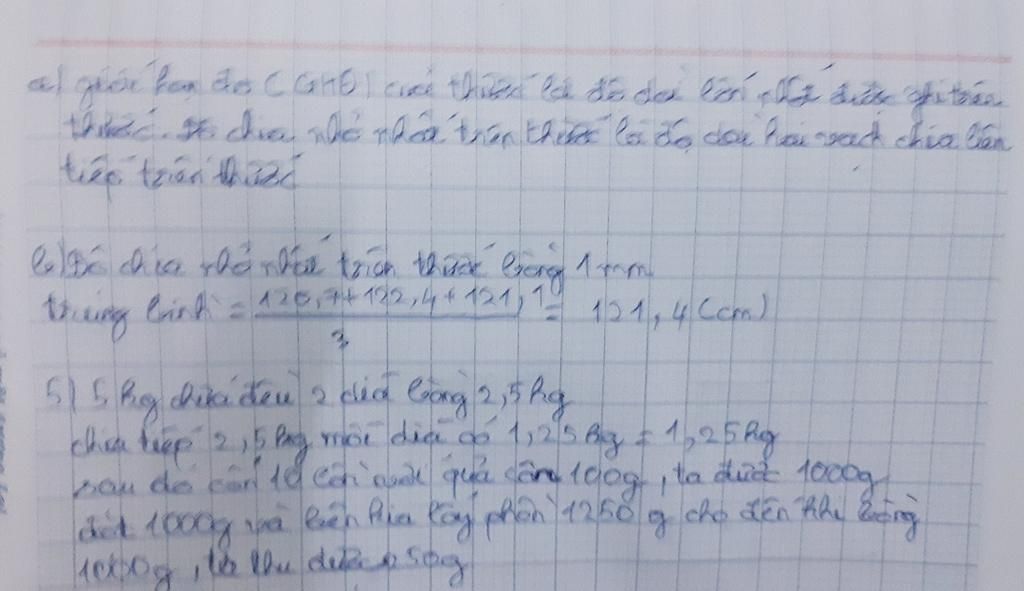 a) giới hạn đo (GHĐ) của thước là độ dài lớn nhất được ghi trên
thước. chia nhỏ nhất trên thước là độ dài hai vạch chia liên
tiếp trên thước
b) Độ chia nhỏ nhất trên thước bằng 1mm
trung bình = 120,7+122,4+121,1 = 121,4 (cm)
3
5) 5kg chia đều 2 dĩa bằng 2,5kg
chia tiếp 2,5kg mỗi dĩa có 1,25kg = 1,25kg
sau đó cân 10 cái quả cân 100g, ta được 1000g
đặt 1000g và bên kia lấy phần 1250g cho đến khi bằng
1000g, ta thu được 250g